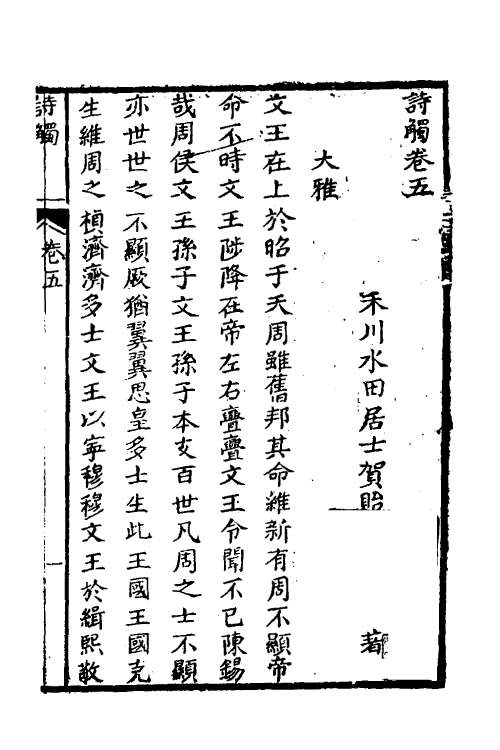 詩觸卷五
禾川水田居士賀貽 著
大雅
文王在上於昭于天周雖舊邦其命維新有周不顯帝
命不時文王陟降在帝左右亹亹文王令聞不已陳錫
哉周侯文王孫子文王孫子本支百世凡周之士不顯
亦世世之不顯厥猶翼翼思皇多士生此王國王國克
生維周之楨濟濟多士文王以寧穆穆文王於緝熙敬
詩觸
卷五
一